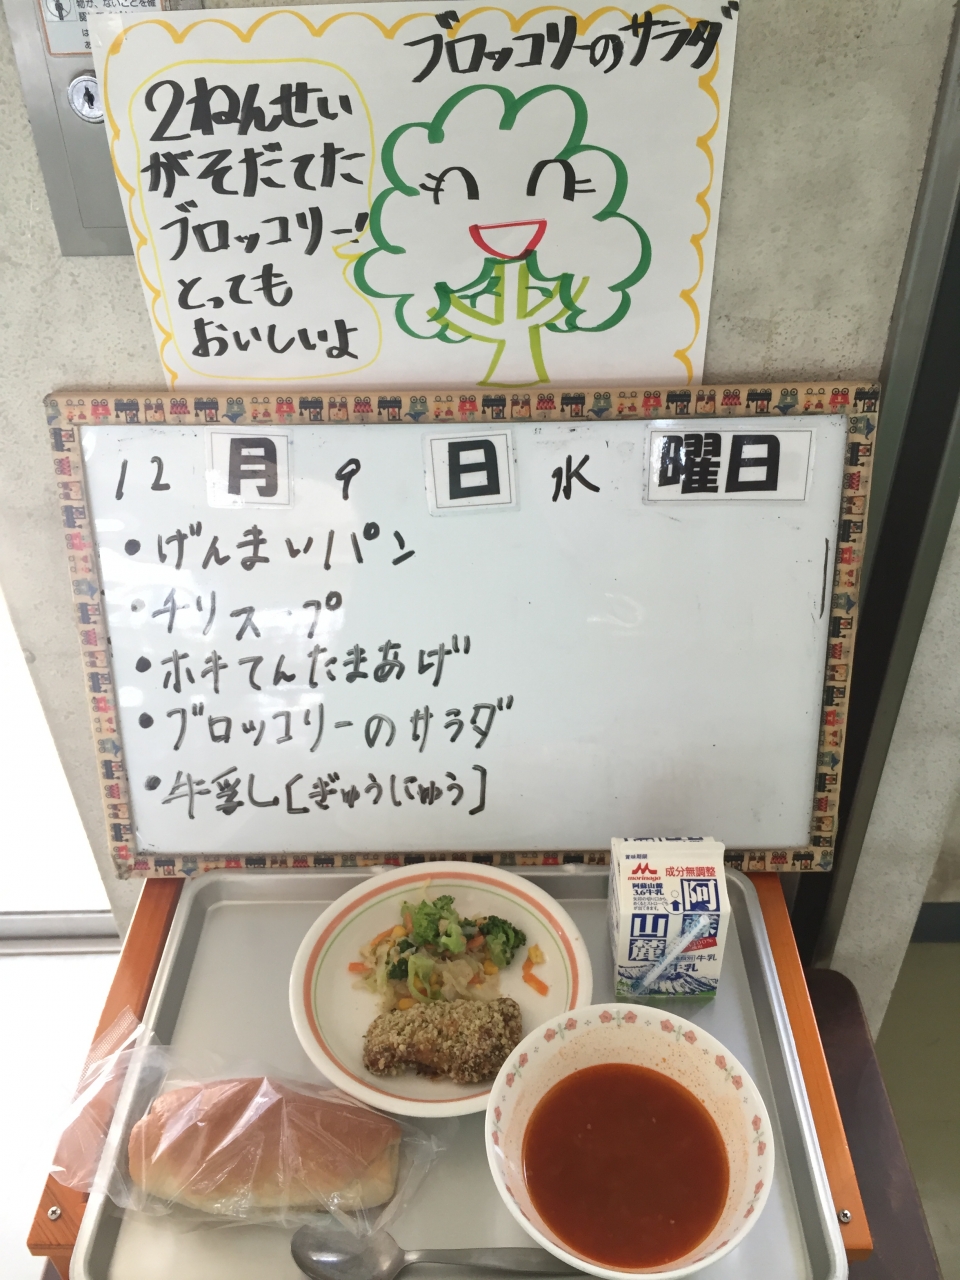 ブロッコリーのサラダ
2ねんせい
がそだてた
ブロッコリー!
とっても
おいしいよ
12月9日水曜日
・げんまいパン
・チリスープ
・ホキてんたまあげ
・ブロッコリーのサラダ
・牛乳し[ぎゅうにゅう]
morinaga
成分無調整
阿蘇山麓
3.6牛乳
阿蘇
山麓
牛乳